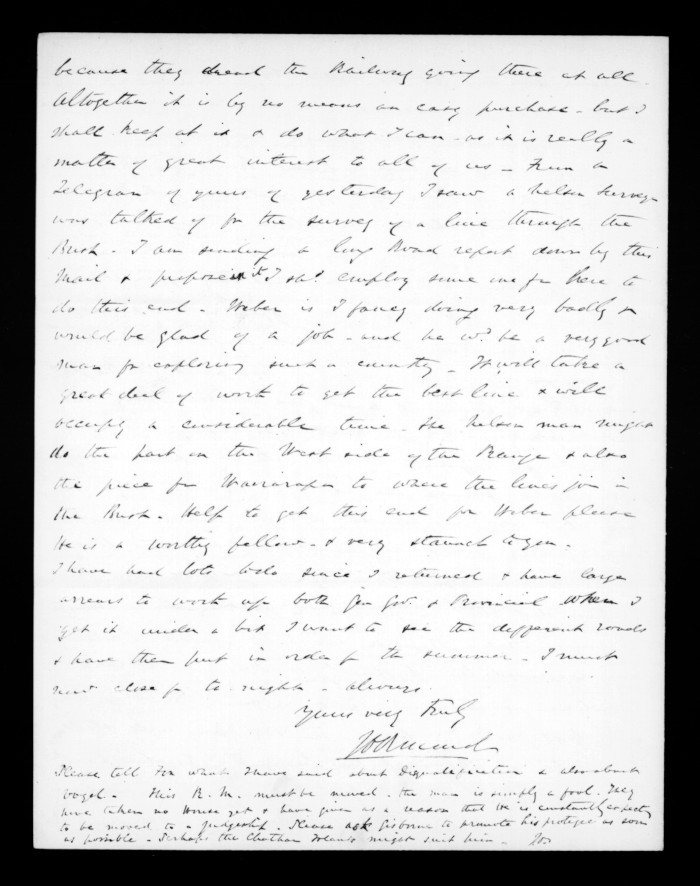 because they dread the Railway going there at all.
Altogether it is by no means an easy purchase - but I
shall keep at it & do what I can - as it is really a
matter of great interest to all of us - From a
Telegram of yours of yesterday I saw a Nelson Surveyor
was talked of for the survey of a line through the
Bush - I am sending a long Road report down by this
Mail & propose in it I shd. employ some one from here to
do this end - Weber is I fancy doing very badly &
would be glad of a job - and he wd. be a very good
man for exploring such a country - It will take a
great deal of work to get the best line & will
occupy a considerable time. The Nelson man might
do the part on the West side of the Range & also
the piece fm Wairarapa to where the lines join in
the Bush - Help to get this end for Weber please
He is a worthy fellow - & very staunch to you -
I have had lots to do since I returned & have large
arrears to work up both Gen Govt. & Provincial When I
get it under a bit I want to see the different roads
& have them put in order for the summer - I must
now close for to night - always
Yours very truly
JD Ormond
Please tell Fox what I have said about Disqualification & also about
Vogel - This R.M. must be moved - the man is simply a fool - They
have taken no House yet & have given as a reason that He is constantly expecting
to be moved to a judgeship - Please ask Gisborne to promote his protegee as soon
as possible - Perhaps the Chatham Islands might suit him - JDO